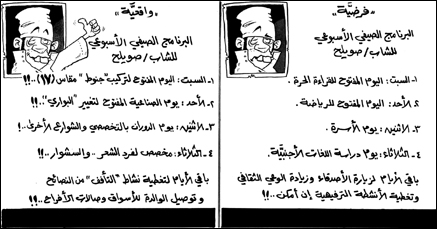 «فرضيَّة»
البرنامج الصيفي الأسبوعي
للشاب/صويلح
١- السبت: اليوم المفتوح للقراءة الحرة.
٢- الأحد: اليوم المفتوح للرياضة.
٣- الاثنين: يوم الأسرة.
٤- الثلاثاء: يوم دراسة اللغات الأجنبيَّة.
باقي الأيام لزيارة الأصدقاء وزيادة الوعي الثقافي
وتغطية الأنشطة الترفيهية إن أمكن..!!
«واقعيَّة»
البرنامج الصيفي الأسبوعي
للشاب/صويلح
١- السبت: اليوم المفتوح لتركيب "جنوط" مقاس (١٧)..!!
٢- الأحد: يوم الصناعية المفتوح لتغيير "البواري"..!!
٣- الاثنين: يوم الدوران بالتخصصي والشوارع الأخرى..!!
٤- الثلاثاء: مخصص لفرد الشعر.. والسشوار..!!
باقي الأيام لتغطية نشاط "التأفف" من النصائح
وتوصيل الوالدة للأسواق وصالات الأفراح..!!